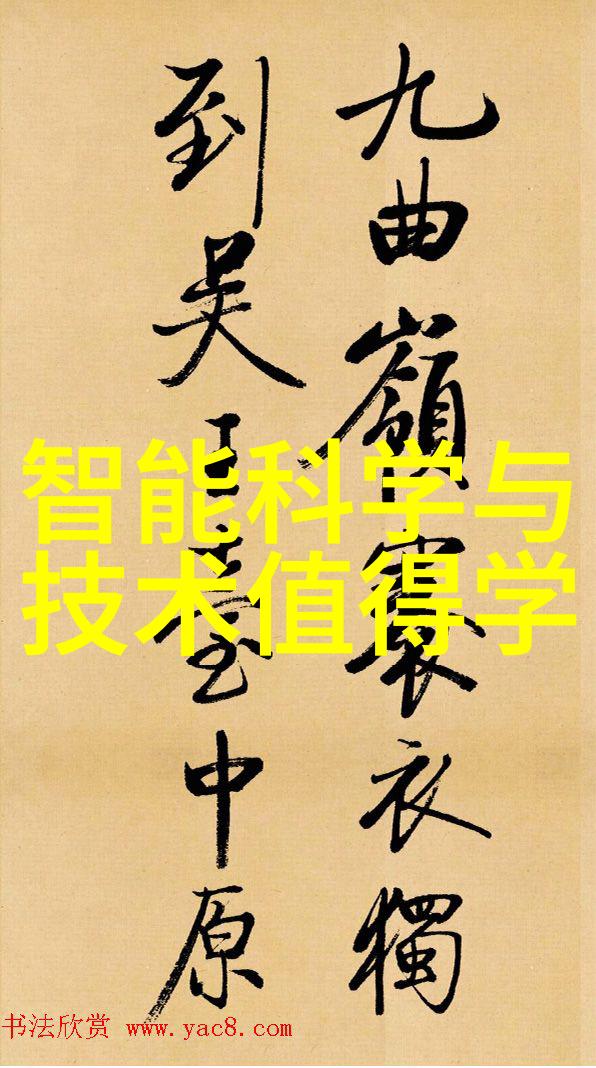 九曲嶺褰衣獨
到吴王臺中原
智能科学与
技术值得学
书法欣赏 www.yac8.com